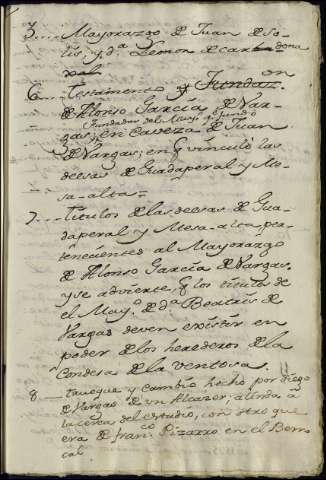 5.... Mayorazgo de Juan de So-
lis, y d.ª Lemon de cardona
6.... testamento y Fundaz.on
de Alonso Garcia de Var-
Fundador del May.º q.e fundó
gas, en Caveza de Juan
de Vargas, en q vinculó las
deesas de Guadaperal y Me-
sa-alta=
7... titulos de las deesas de Gua-
daperal y Mesa-alta, per-
tenecientes al Mayorazgo
de Alonso Garcia de Vargas.
y se advierte, q los titulos de
el May.º de d.ª Beatriz de
Vargas deven existir en
poder de los herederos de la
Condesa de la ventosa.
8.... trueque y cambio hecho por diego
de Vargas de un Alcazer; alinda a
la cerca del estudio, con otro que
era de fran.co Pizarro en el Berro
cal